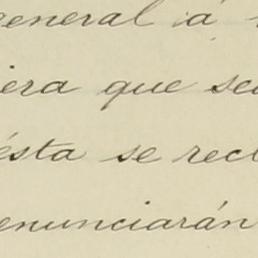 general á
iera que se
ésta se rec
enunciarán